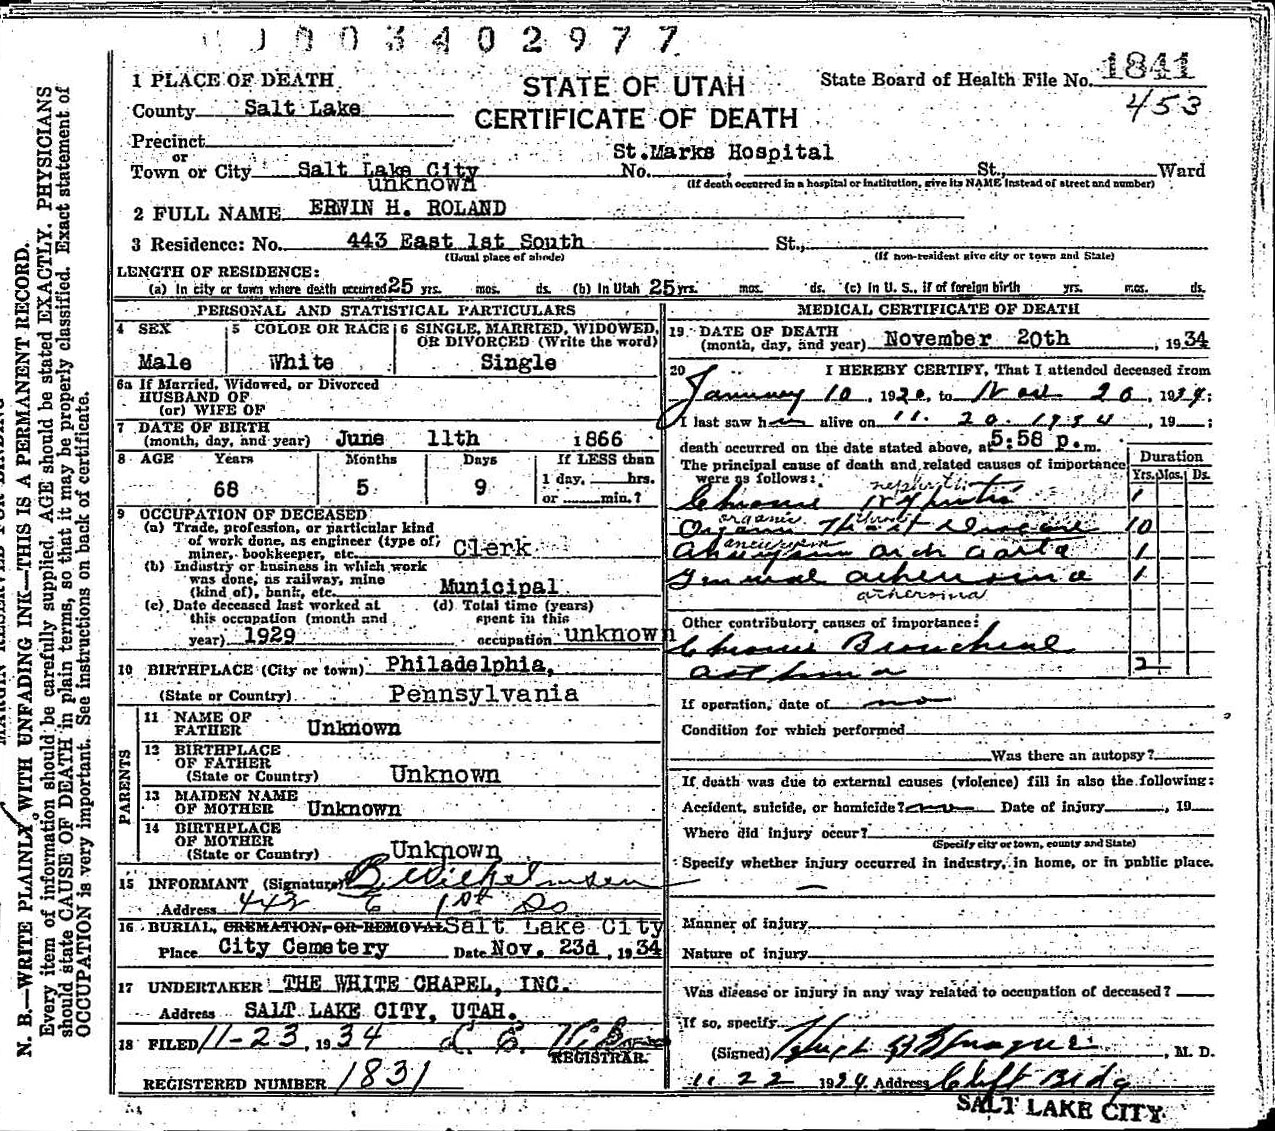 0003402977
1841
453
STATE OF UTAH
CERTIFICATE OF DEATH
State Board of Health File No.
1 PLACE OF DEATH
County Salt Lake
Precinct
or
Town or City Salt Lake City
St.Marks Hospital
No. , St., Ward
(If death occurred in a hospital or institution, give its NAME instead of street and number)
unknown
2 FULL NAME ERWIN H. ROLAND
3 Residence: No. 443 East 1st South St.,
(Usual place of abode) (If non-resident give city or town and State)
LENGTH OF RESIDENCE:
(a) In city or town where death occurred 25 yrs. mos. ds. (b) In Utah 25 yrs. mos. ds. (c) In U. S., if of foreign birth yrs. mos. ds.
PERSONAL AND STATISTICAL PARTICULARS
4 SEX
Male
5 COLOR OR RACE
White
6 SINGLE, MARRIED, WIDOWED,
OR DIVORCED (Write the word)
Single
6a If Married, Widowed, or Divorced
HUSBAND OF
(or) WIFE OF
7 DATE OF BIRTH
(month, day, and year) June 11th 1866
8 AGE Years Months Days If LESS than
1 day, hrs.
68 5 9 or min.?
9 OCCUPATION OF DECEASED
(a) Trade, profession, or particular kind
of work done, as engineer (type of)
miner, bookkeeper, etc. Clerk
(b) Industry or business in which work
was done, as railway, mine
(kind of), bank, etc. Municipal
(c) Date deceased last worked at
this occupation (month and
year) 1929
(d) Total time (years)
spent in this
occupation unknown
10 BIRTHPLACE (City or town) Philadelphia,
(State or Country) Pennsylvania
PARENTS
11 NAME OF
FATHER Unknown
12 BIRTHPLACE
OF FATHER
(State or Country) Unknown
13 MAIDEN NAME
OF MOTHER Unknown
14 BIRTHPLACE
OF MOTHER
(State or Country) Unknown
15 INFORMANT (Signature) B Wilhelmsen
Address 443 E 1st So
16 BURIAL, CREMATION, OR REMOVAL Salt Lake City
Place City Cemetery Date Nov. 23d, 1934
17 UNDERTAKER THE WHITE CHAPEL, INC.
Address SALT LAKE CITY, UTAH.
18 FILED 11-23, 1934
REGISTRAR.
REGISTERED NUMBER 1831
MEDICAL CERTIFICATE OF DEATH
19 DATE OF DEATH
(month, day, and year) November 20th, 1934
20 I HEREBY CERTIFY, That I attended deceased from
January 10, 1920, to Nov 20, 1934;
I last saw him alive on 11. 20. 1934, 19 ;
death occurred on the date stated above, at 5:58 p.m.
The principal cause of death and related causes of importance
were as follows:
Duration
Yrs. Mos. Ds.
nephritis
Chronic Nephritis 1
organic
Organic Heart Disease 10
aneurysm
Aneurysm arch aorta 1
General atheroma 1
atheroma
Other contributory causes of importance:
Chronic Bronchial
asthma 2
If operation, date of no
Condition for which performed
Was there an autopsy?
If death was due to external causes (violence) fill in also the following:
Accident, suicide, or homicide? no Date of injury , 19
Where did injury occur?
(Specify city or town, county and State)
Specify whether injury occurred in industry, in home, or in public place.
Manner of injury
Nature of injury
Was disease or injury in any way related to occupation of deceased?
If so, specify
(Signed) Hugh B Sprague, M. D.
11 22 1934 Address Clift Bldg
SALT LAKE CITY
MARGIN RESERVED FOR BINDING
N. B.—WRITE PLAINLY WITH UNFADING INK—THIS IS A PERMANENT RECORD.
Every item of information should be carefully supplied. AGE should be stated EXACTLY. PHYSICIANS
should state CAUSE OF DEATH in plain terms, so that it may be properly classified. Exact statement of
OCCUPATION is very important. See instructions on back of certificate.